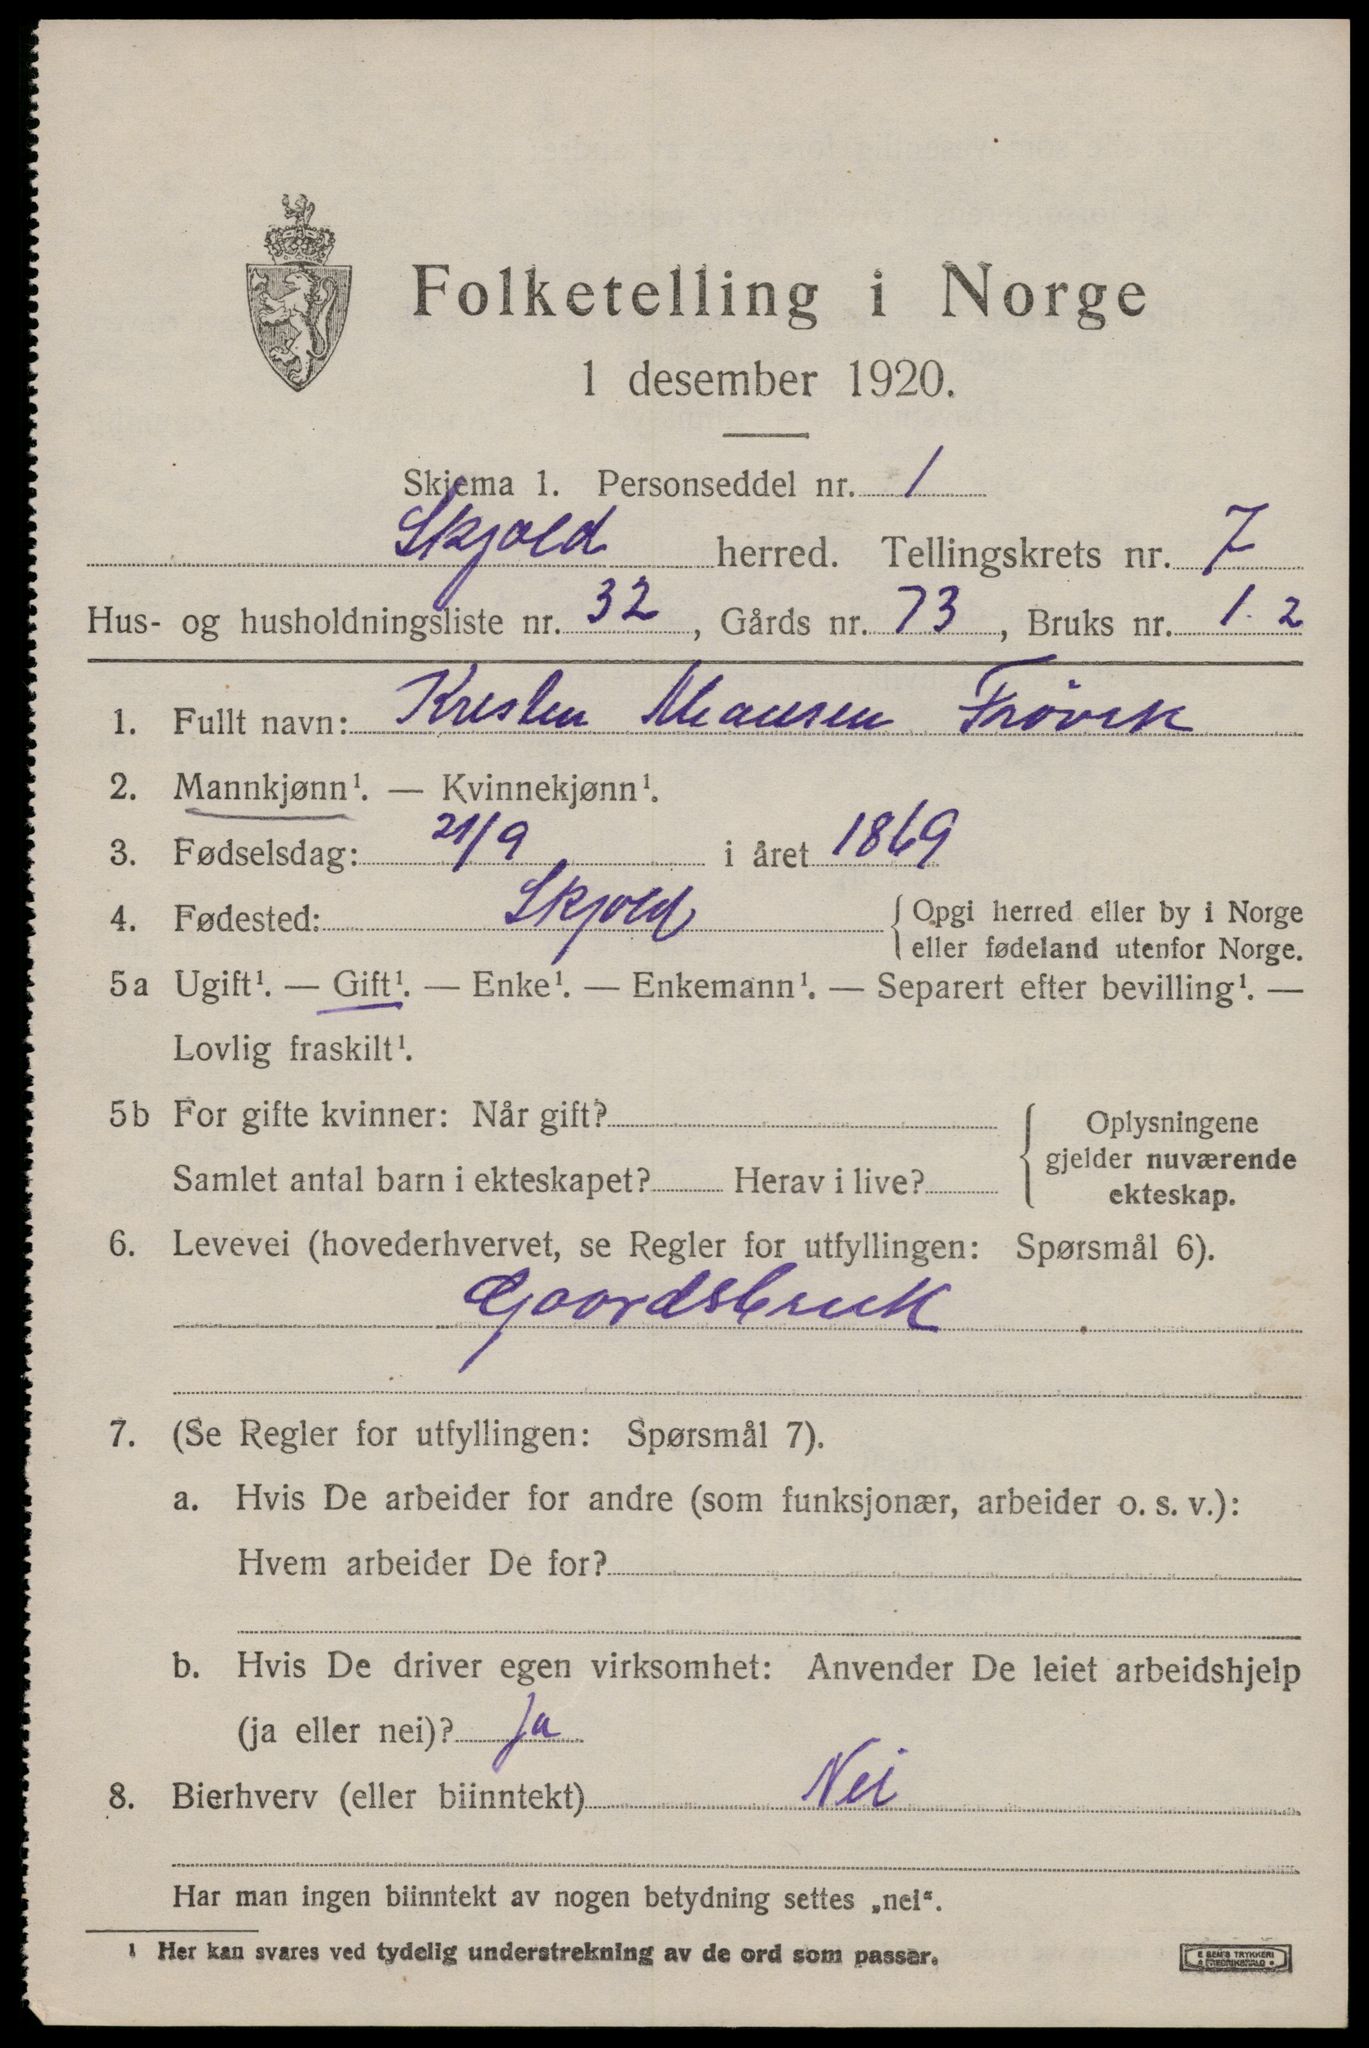 Folketelling i Norge
1 desember 1920.
Skjema 1. Personseddel nr. 1
Skjold herred. Tellingskrets nr. 7
Hus- og husholdningsliste nr. 32, Gårds nr. 73, Bruks nr. 1. 2
1. Fullt navn: Kresten Mansen Frövik
2. Mannkjønn¹. — Kvinnekjønn¹.
3. Fødselsdag: 21/9 i året 1869
4. Fødested: Skjold {Opgi herred eller by i Norge
eller fødeland utenfor Norge.
5a Ugift¹. — Gift¹. — Enke¹. — Enkemann¹. — Separert efter bevilling¹. —
Lovlig fraskilt¹.
5b For gifte kvinner: Når gift?
Samlet antal barn i ekteskapet? Herav i live?
Oplysningene
gjelder nuværende
ekteskap.
6. Levevei (hovederhvervet, se Regler for utfyllingen: Spørsmål 6).
Goardsbruk
7. (Se Regler for utfyllingen: Spørsmål 7).
a. Hvis De arbeider for andre (som funksjonær, arbeider o. s. v.):
Hvem arbeider De for?
b. Hvis De driver egen virksomhet: Anvender De leiet arbeidshjelp
(ja eller nei)? Ja
8. Bierhverv (eller biinntekt) Nei
Har man ingen biinntekt av nogen betydning settes „nei“.
¹ Her kan svares ved tydelig understrekning av de ord som passer.
E SEM'S TRYKKERI
FREDRIKSHALD